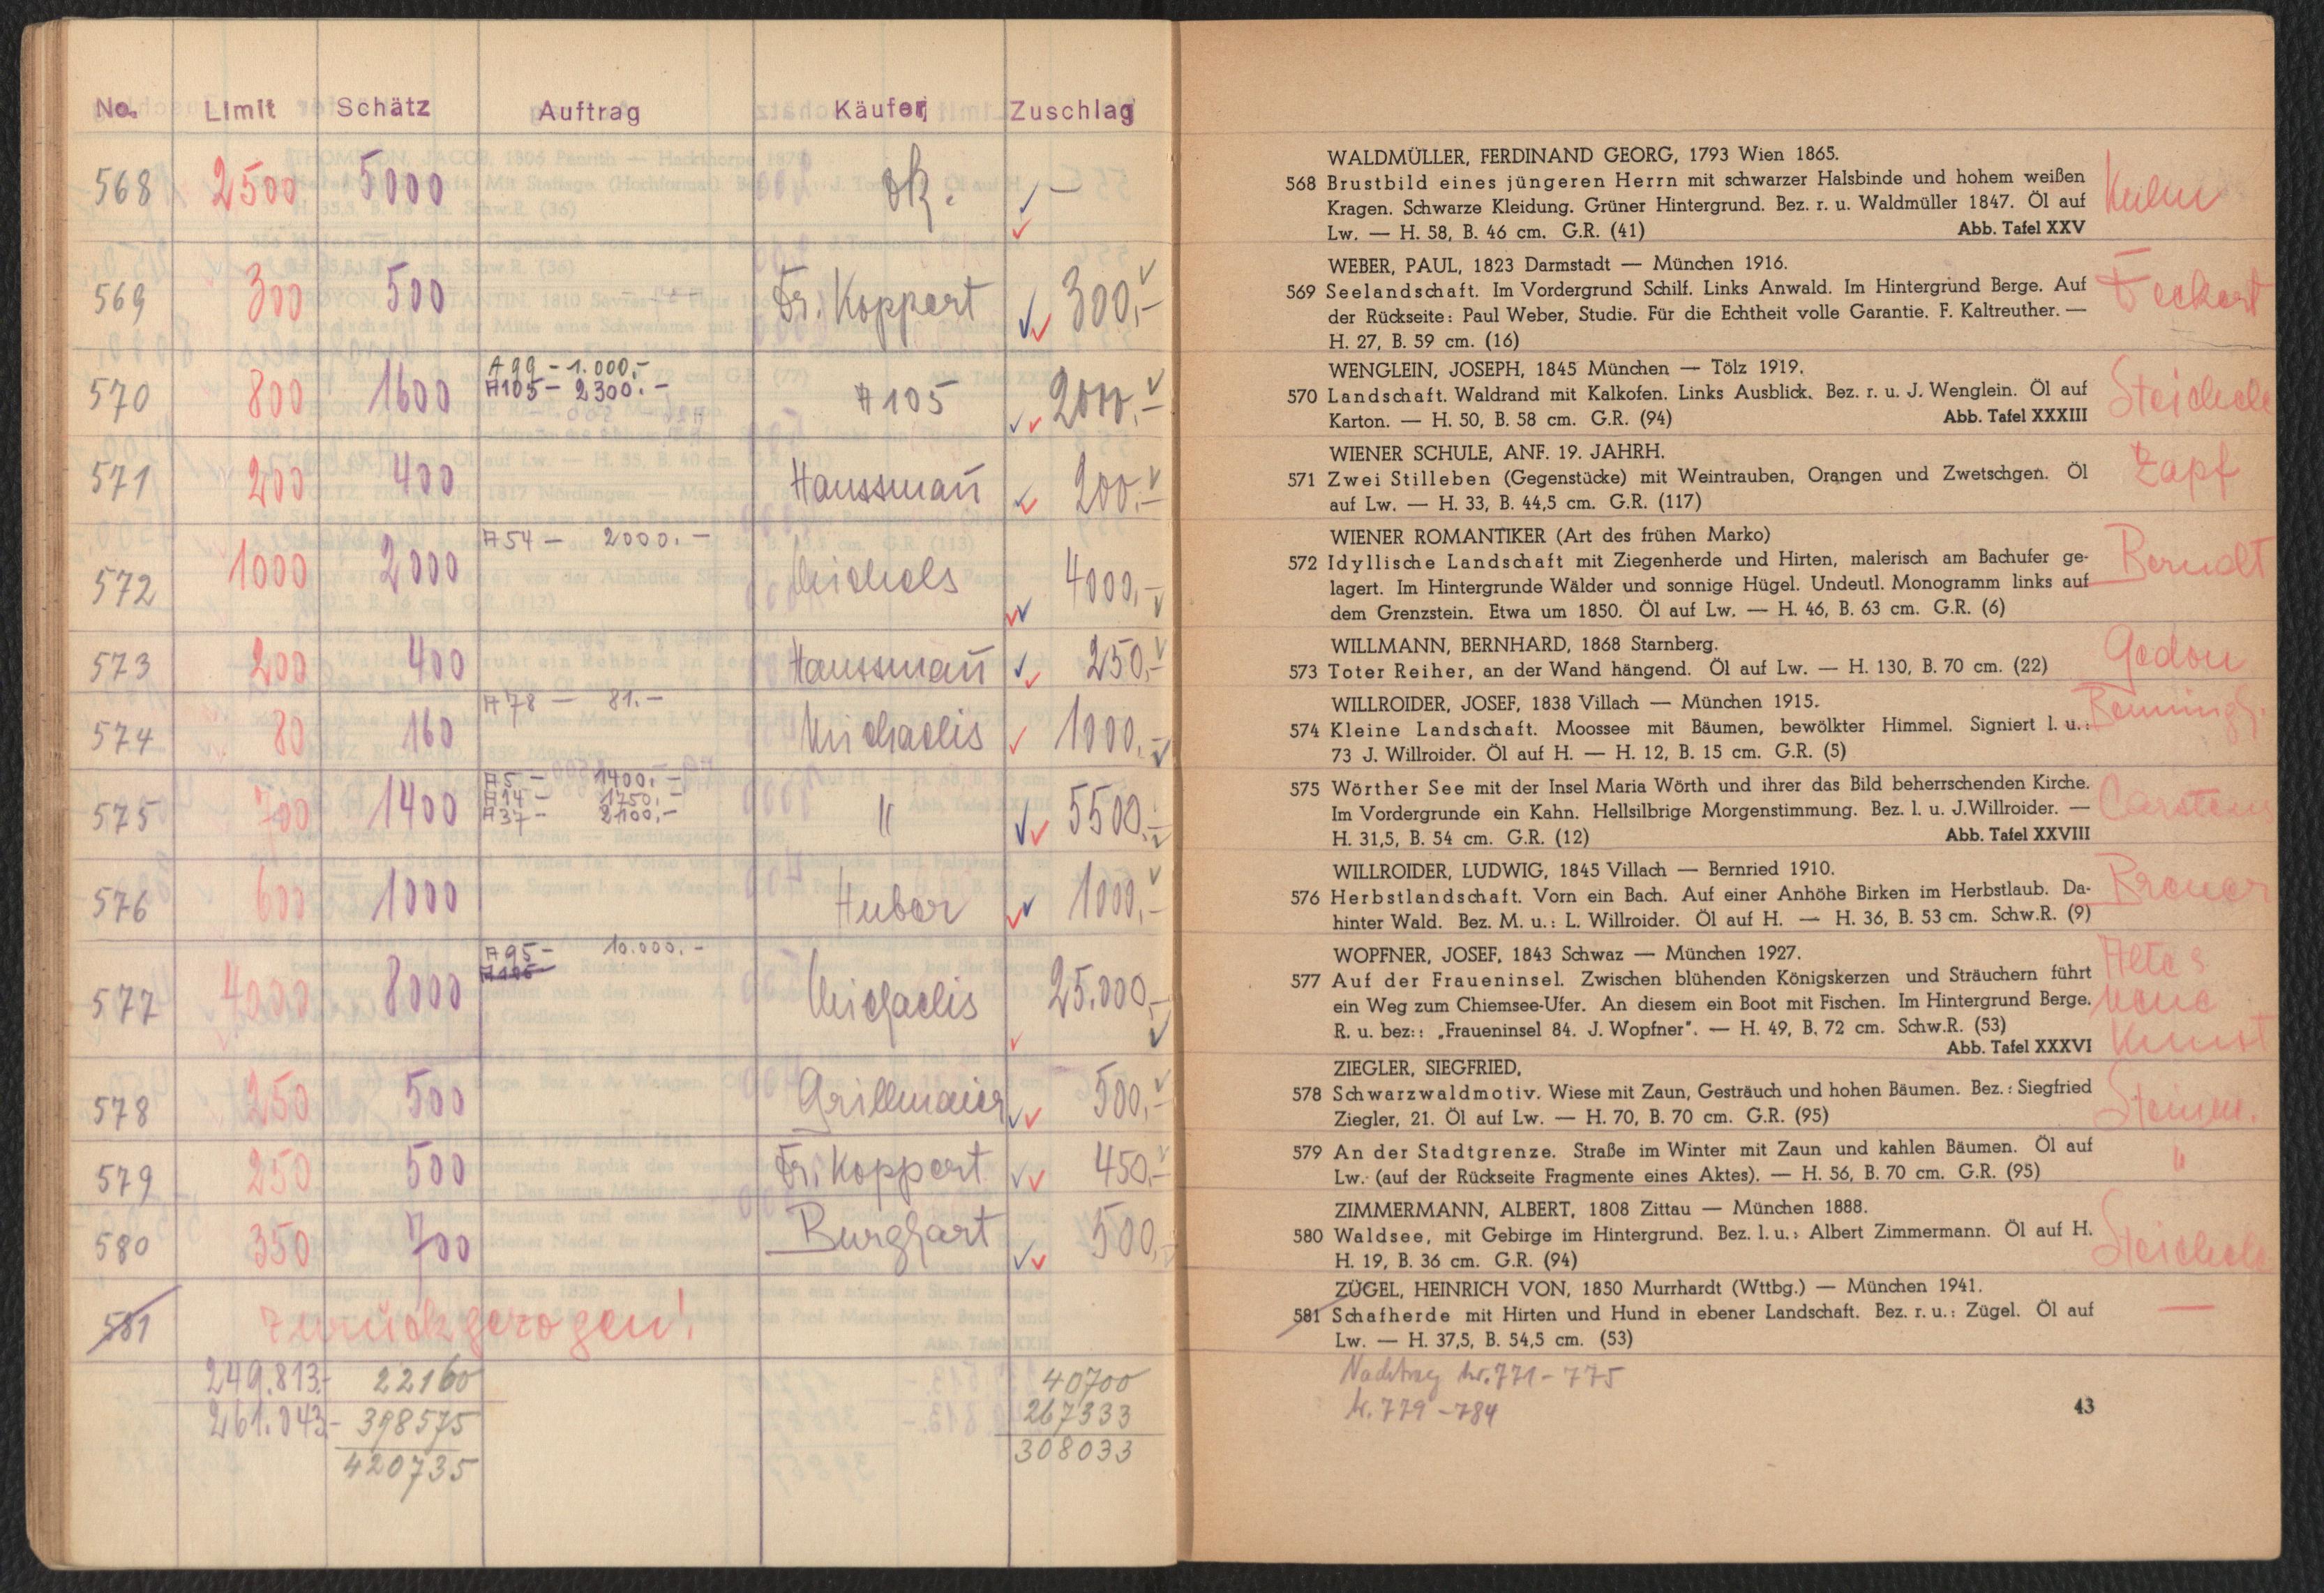 No. Limit Schätz Auftrag Käufer Zuschlag
568 2500 5000 —
569 300 500 Fr. Koppert 300,-
A99 - 1.000,-
570 800 1600 A105 - 2300.- A105 2000,-
571 200 400 Haussmañ 200.-
A54 - 2000.-
572 1000 2000 4000,-
573 200 400 Haussmañ 250,-
A78 - 81.-
574 80 160 Michaelis 1000,-
A5 - 1400.-
575 700 1400 A14 - 1750.- " 5500.-
A37 - 2100,-
576 600 1000 Huber 1000,-
A95 - 10.000.-
A105
577 4000 8000 Michaelis 25.000,-
578 250 500 Grillmaier 500,-
579 250 500 Fr. Koppert 450,-
580 350 700 Burghart 500,-
581 zurückgezogen!
249.813.- 22160 40700
261.043.- 398575 267333
420735 308033
WALDMÜLLER, FERDINAND GEORG, 1793 Wien 1865.
568 Brustbild eines jüngeren Herrn mit schwarzer Halsbinde und hohem weißen
Kragen. Schwarze Kleidung. Grüner Hintergrund. Bez. r. u. Waldmüller 1847. Öl auf
Lw. — H. 58, B. 46 cm. G.R. (41) Abb. Tafel XXV
WEBER, PAUL, 1823 Darmstadt — München 1916.
569 Seelandschaft. Im Vordergrund Schilf. Links Anwald. Im Hintergrund Berge. Auf
der Rückseite: Paul Weber, Studie. Für die Echtheit volle Garantie. F. Kaltreuther. —
H. 27, B. 59 cm. (16)
WENGLEIN, JOSEPH, 1845 München — Tölz 1919.
570 Landschaft. Waldrand mit Kalkofen. Links Ausblick. Bez. r. u. J. Wenglein. Öl auf
Karton. — H. 50, B. 58 cm. G.R. (94) Abb. Tafel XXXIII
Steichele
WIENER SCHULE, ANF. 19. JAHRH.
571 Zwei Stilleben (Gegenstücke) mit Weintrauben, Orangen und Zwetschgen. Öl
auf Lw. — H. 33, B. 44,5 cm. G.R. (117)
Zapf
WIENER ROMANTIKER (Art des frühen Marko)
572 Idyllische Landschaft mit Ziegenherde und Hirten, malerisch am Bachufer ge-
lagert. Im Hintergrunde Wälder und sonnige Hügel. Undeutl. Monogramm links auf
dem Grenzstein. Etwa um 1850. Öl auf Lw. — H. 46, B. 63 cm. G.R. (6)
Berndt
WILLMANN, BERNHARD, 1868 Starnberg.
573 Toter Reiher, an der Wand hängend. Öl auf Lw. — H. 130, B. 70 cm. (22)
Gedon
WILLROIDER, JOSEF, 1838 Villach — München 1915.
574 Kleine Landschaft. Moossee mit Bäumen, bewölkter Himmel. Signiert l. u.:
73 J. Willroider. Öl auf H. — H. 12, B. 15 cm. G.R. (5)
575 Wörther See mit der Insel Maria Wörth und ihrer das Bild beherrschenden Kirche.
Im Vordergrunde ein Kahn. Hellsilbrige Morgenstimmung. Bez. l. u. J.Willroider. —
H. 31,5, B. 54 cm. G.R. (12) Abb. Tafel XXVIII
Carstens
WILLROIDER, LUDWIG, 1845 Villach — Bernried 1910.
576 Herbstlandschaft. Vorn ein Bach. Auf einer Anhöhe Birken im Herbstlaub. Da-
hinter Wald. Bez. M. u.: L. Willroider. Öl auf H. — H. 36, B. 53 cm. Schw.R. (9)
WOPFNER, JOSEF, 1843 Schwaz — München 1927.
577 Auf der Fraueninsel. Zwischen blühenden Königskerzen und Sträuchern führt
ein Weg zum Chiemsee-Ufer. An diesem ein Boot mit Fischen. Im Hintergrund Berge.
R. u. bez:: „Fraueninsel 84. J. Wopfner". — H. 49, B. 72 cm. Schw.R. (53)
Abb. Tafel XXXVI
Alte s
Neue
Kunst
ZIEGLER, SIEGFRIED,
578 Schwarzwaldmotiv. Wiese mit Zaun, Gesträuch und hohen Bäumen. Bez.: Siegfried
Ziegler, 21. Öl auf Lw. — H. 70, B. 70 cm. G.R. (95)
579 An der Stadtgrenze. Straße im Winter mit Zaun und kahlen Bäumen. Öl auf
Lw. (auf der Rückseite Fragmente eines Aktes). — H. 56, B. 70 cm. G.R. (95)
"
ZIMMERMANN, ALBERT, 1808 Zittau — München 1888.
580 Waldsee, mit Gebirge im Hintergrund. Bez. l. u.: Albert Zimmermann. Öl auf H.
H. 19, B. 36 cm. G.R. (94)
Steichele
ZÜGEL, HEINRICH VON, 1850 Murrhardt (Wttbg.) — München 1941.
581 Schafherde mit Hirten und Hund in ebener Landschaft. Bez. r. u.: Zügel. Öl auf
Lw. — H. 37,5, B. 54,5 cm. (53)
—
Nachtrag Nr. 771 - 775
N. 779 - 784
43